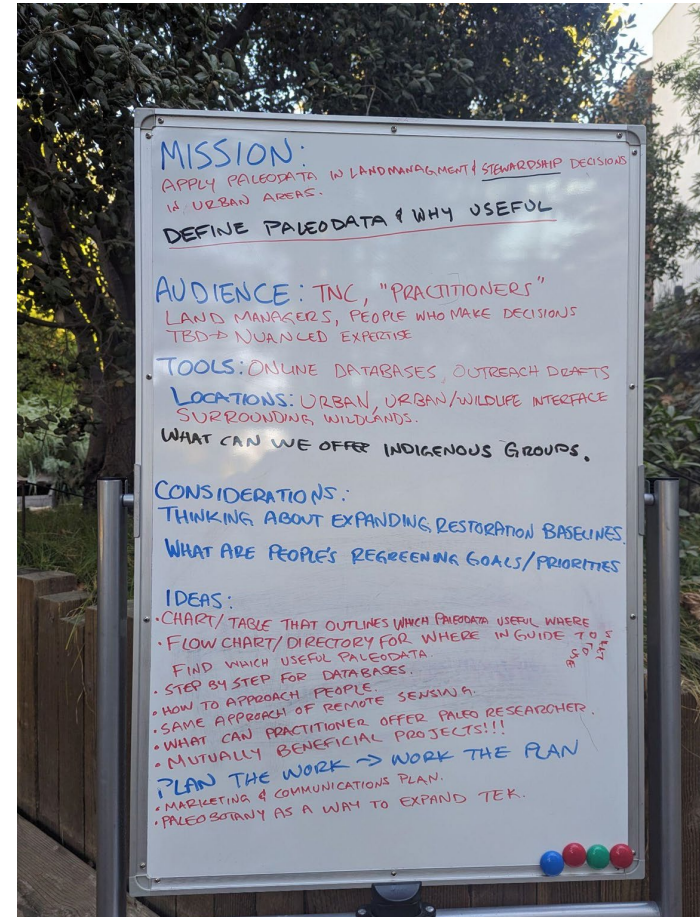 MISSION:
APPLY PALEODATA IN LANDMANAGMENT & STEWARDSHIP DECISIONS
IN URBAN AREAS.
DEFINE PALEODATA & WHY USEFUL
AUDIENCE: TNC, "PRACTITIONERS"
LAND MANAGERS, PEOPLE WHO MAKE DECISIONS
TBD → NUANCED EXPERTISE
TOOLS: ONLINE DATABASES, OUTREACH DRAFTS
LOCATIONS: URBAN, URBAN/WILDLIFE INTERFACE
SURROUNDING WILDLANDS.
WHAT CAN WE OFFER INDIGENOUS GROUPS.
CONSIDERATIONS:
THINKING ABOUT EXPANDING RESTORATION BASELINES.
WHAT ARE PEOPLE'S REGREENING GOALS/PRIORITIES
IDEAS:
• CHART/TABLE THAT OUTLINES WHICH PALEODATA USEFUL WHERE
• FLOW CHART/DIRECTORY FOR WHERE IN GUIDE TO
FIND WHICH USEFUL PALEODATA.
• STEP BY STEP FOR DATABASES.
• HOW TO APPROACH PEOPLE.
• SAME APPROACH OF REMOTE SENSING.
• WHAT CAN PRACTITIONER OFFER PALEO RESEARCHER.
• MUTUALLY BENEFICIAL PROJECTS!!!
PLAN THE WORK → WORK THE PLAN
• MARKETING & COMMUNICATIONS PLAN.
• PALEOBOTANY AS A WAY TO EXPAND TEK.